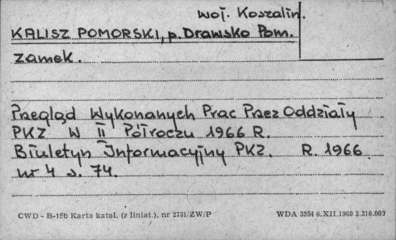 woj. Koszalin.
KALISZ POMORSKI, p. Drawsko Pom.
zamek.
Przegląd Wykonanych Prac Przez Oddziały
PKZ W II Półroczu 1966 R.
Biuletyn Informacyjny PKZ. R. 1966
nr 4 s. 74.
CWD - B-15b Karta katal. (z liniat.), nr 2731/ZW/P WDA 3354 6.XII.1960 3.310.003